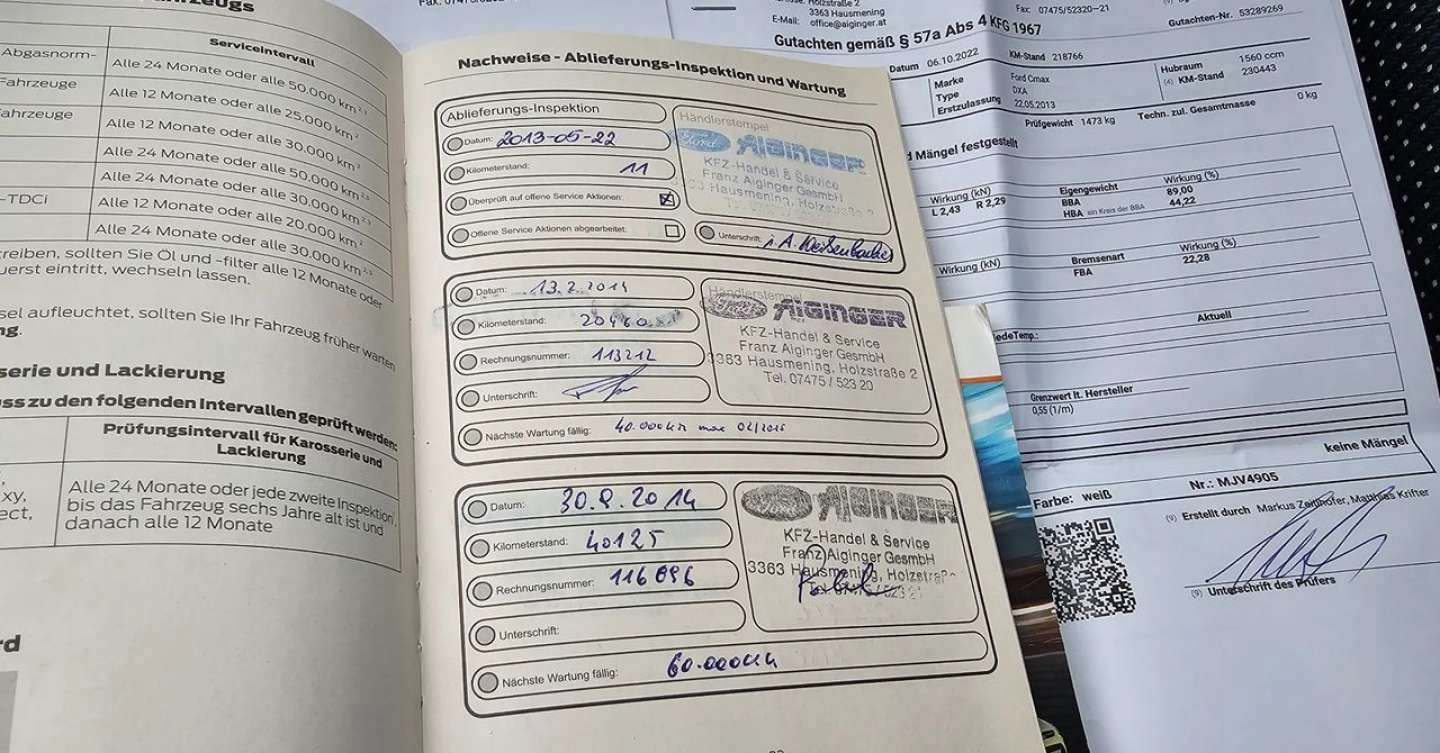 ahrzeugs
Serviceintervall
Abgasnorm-
Alle 24 Monate oder alle 50.000 km 2,3
Fahrzeuge
Alle 12 Monate oder alle 25.000 km 2
ahrzeuge
Alle 12 Monate oder alle 30.000 km 2
Alle 24 Monate oder alle 50.000 km 2,3
Alle 24 Monate oder alle 30.000 km 2,3
-TDCi
Alle 12 Monate oder alle 20.000 km 2
Alle 24 Monate oder alle 30.000 km 2,3
reiben, sollten Sie Öl und -filter alle 12 Monate oder
uerst eintritt, wechseln lassen.
sel aufleuchtet, sollten Sie Ihr Fahrzeug früher warten
ng.
serie und Lackierung
ss zu den folgenden Intervallen geprüft werden:
Prüfungsintervall für Karosserie und
Lackierung
xy,
ect,
Alle 24 Monate oder jede zweite Inspektion,
bis das Fahrzeug sechs Jahre alt ist und
danach alle 12 Monate
rd
Nachweise - Ablieferungs-Inspektion und Wartung
Ablieferungs-Inspektion
Datum: 2013-05-22
Kilometerstand: 11
Überprüft auf offene Service Aktionen:
Offene Service Aktionen abgearbeitet:
Händlerstempel
Ford AIGINGER
KFZ-Handel & Service
Franz Aiginger GesmbH
3363 Hausmening, Holzstraße 2
Unterschrift: i.A.
Datum: 13.2.2014
Kilometerstand: 20460
Rechnungsnummer: 113212
Unterschrift:
Nächste Wartung fällig: 40.000 km max 02/2015
Händlerstempel
AIGINGER
KFZ-Handel & Service
Franz Aiginger GesmbH
3363 Hausmening, Holzstraße 2
Tel. 07475 / 523 20
Datum: 30.9.2014
Kilometerstand: 40125
Rechnungsnummer: 116896
Unterschrift:
Nächste Wartung fällig: 60.000 km
AIGINGER
KFZ-Handel & Service
Franz Aiginger GesmbH
3363 Hausmening, Holzstraße
Holzstraße 2
3363 Hausmening
E-Mail: office@aiginger.at
Fax: 07475/52320-21
Gutachten-Nr. 53289269
Gutachten gemäß § 57a Abs 4 KFG 1967
Datum 06.10.2022
KM-Stand 218766
Marke Ford Cmax
Type DXA
Erstzulassung 22.05.2013
Hubraum 1560 ccm
(4) KM-Stand 230443
Prüfgewicht 1473 kg
Techn. zul. Gesamtmasse 0 kg
d Mängel festgestellt
Wirkung (kN)
L 2,43 R 2,29
Eigengewicht
BBA
HBA ein Kreis der BBA
Wirkung (%)
89,00
44,22
Wirkung (kN)
Bremsenart
FBA
Wirkung (%)
22,28
Aktuell
iedeTemp.:
Grenzwert lt. Hersteller
0,55 (1/m)
keine Mängel
Farbe: weiß
Nr.: MJV4905
(9) Erstellt durch Markus Zeitlhofer, Matthias Krifter
(9) Unterschrift des Prüfers